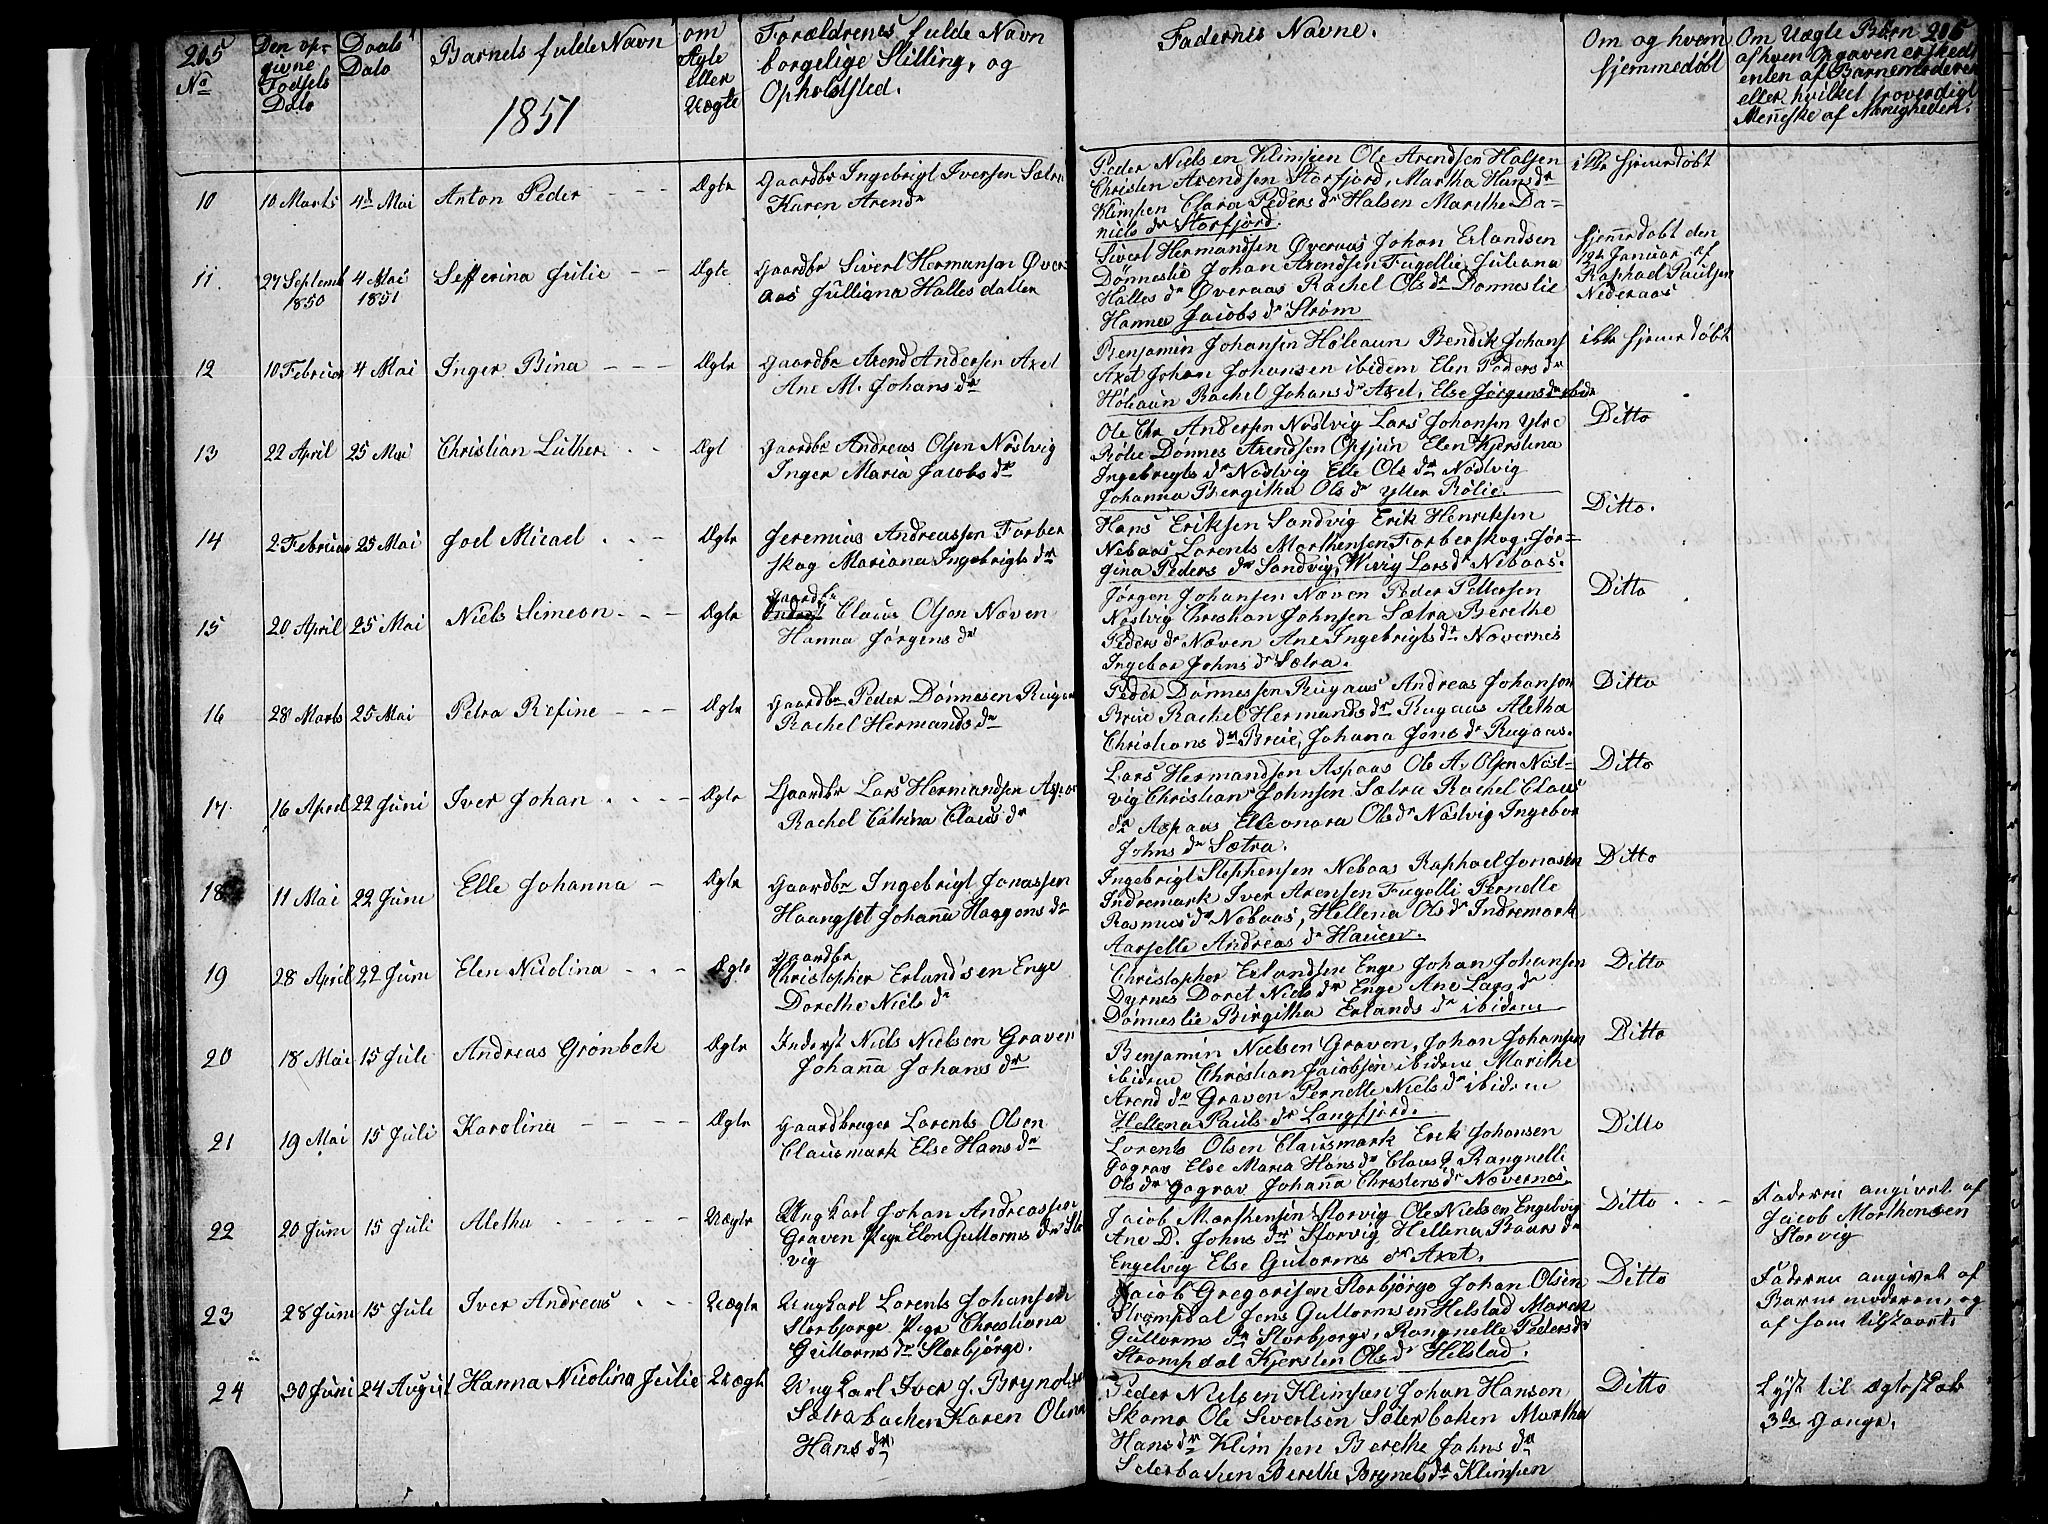 205
No
Den op-
givne
Fødsels
Dato
Daabs
Dato
Barnets fulde Navn
1851
om
Ægte
eller
Uægte
Forældrenes fulde Navn
borgelige Stilling, og
Opholdsted.
Fadernes Navne.
Om og hvem
hjemmedøbt
Om Uægte Børn
206
af hven Opgaven er skeed
enten af Barnemoderen
eller hvilket troverdigt
Menneske af Navnigheden.
10
10 Marts
4d Mai
Anton Peder
Ægte
Gaardbr Ingebrigt Iversen Sætra
Karen Arendr
Peder Nielsen Klimpen Ole Arendsen Halsen
Christen Arendsen Storfjord, Martha Hansdr
Klimpen Clara Pedersdr Halsen Marethe Da-
nielsdr Storfjord.
ikke hjemdøbt
11
27 Septemb
1850
4 Mai
1851
Sefferina Julie
Ægte
Gaardbr Sivert Hermansen Øver
aas Julliana Hallesdatter
Sivert Hermandsen Øveraas Johan Erlandsen
Dønneslie Johan Arendsen Fugellie, Juliana
Hallesdr Øveraas Rachel Olsdr Donneslie
Hanna Jacobsdr Strøm
hjemdøbt den
12t Januar af
Raphael Paulsen
Nederaas
12
10 Februar
4 Mai
Inger Bina
Ægte
Gaardbr Arend Andersen Axel
Ane M. Johansdr
Benjamin Johansen Høleaun Bendik Johans
Axet Johan Johansen ibidem Elen Pedersdr
Høleaun Rachel Johansdr Axel, Else Jørgensdr ibide
ikke hjemdøbt
13
22 April
25 Mai
Christian Luther
Ægt
Gaardbr Andreas Olsen Nostvig
Inger Maria Jacobsdr
Ole Chr Andersen Nostvig Lars Johansen Ytre
Rølie Dønnes Arendsen Opsjøn Elen Kjerstina
Ingebregtsdr Nostvig Elle Olsdr Nostvig
Johanna Bergitha Olsdr Ytter Rølie.
Ditto
14
2 Februar
25 Mai
Joel Micael
Ægte
Jeremias Andreassen Forber
skog Mariana Ingebrigtsdr
Hans Eriksen Sandvig Erik Henriksen
Nebaas Lorents Morthensen Forberskog Jør-
gina Pedersdr Sandvig, Larsdr Nebaas.
Ditto.
15
20 April
25 Mai
Niels Simeon
Ægte
Gaardbr
Claus Olsen Nøven
Hanna Jørgensdr
Jørgen Johansen Nøven Peder Pettersen
Nostvig Christian Johnsen Sætra Berethe
Pedersdr Nøven Ane Ingebrigtsdr Nøvernes
Ingebor Johnsdr Sætra.
Ditto
16
28 Marts
25 Mai
Petra Refine
Ægte
Gaardbr Peder Dønnesen Rugaas
Rachel Hermandsdr
Peder Dønnessen Rugaas Andreas Johansen
Brue Rachel Hermandsdr Rugaas Aletha
Christiansdr Brue, Johana Jonsdr Rugaas.
Ditto
17
16 April
22 Juni
Iver Johan
Ægte
Gaardbr Lars Hermandsen Aspaa
Rachel Catrina Clausdr
Lars Hermandsen Aspaas Ole A. Olsen Nost-
vig Christian Johnsen Sætra Rachel Claus
dr Aspaas Elleonora Olsdr Nostvig Ingebor
Johnsdr Sætra.
Ditto
18
11 Mai
22 Juni
Elle Johanna
Ægte
Gaardbr Ingebrigt Jonassen
Haangset Johanna Haagensdr
Ingebrigt Stephensen Nebaas Raphael Jonasen
Indremark Iver Arensen Fugelli Pernelle
Rasmusdr Nebaas, Hellena Olsdr Indremark
Aarselle Andreasdr Hauen.
Ditto
19
28 April
22 Juni
Elen Nicolina
Ægte
Gaardbr
Christopher Erlandsen Enge
Dorethe Nielsdr
Christopher Erlandsen Enge Johan Johansen
Dyrnes Doret Nielsdr Enge Ane Larsdr
Dønneslie Birgitha Erlandsdr ibidem
Ditto
20
18 Mai
15 Juli
Andreas Grønbek
Ægte
Inderst Niels Nielsen Graven
Johanna Johansdr
Benjamin Nielsen Graven, Johan Johansen
ibidem Christian Jacobsen ibidem Marithe
Arenddr Graven Pernelle Nielsdr ibidem
Hellena Paulsdr Langfjord.
Ditto
21
19 Mai
15 Juli
Karolina
Ægte
Gaardbruger Lorents Olsen
Clausmark Else Hansdr
Lorents Olsen Clausmark Erik Johansen
Gograv Else Maria Hansdr Claus Rangnelli
Olsdr Gograv Johanna Christensdr Nøvernes.
Ditto
22
20 Juni
15 Juli
Aletha
Uægte
Ungkarl Johan Andreassen
Graven Pige Elen Guttormsdr Stor
vig
Jacob Morthensen Storvig Ole Nielsen Engelvig
Ane D. Johnsdr Storvig Hellena Paarsdr
Engelvig Else Gutormsdr Axet.
Ditto
Faderen angivet af
Jacob Morthensen
Storvig
23
28 Juni
15 Juli
Iver Andreas
Uægte
Ungkarl Lorents Johansen
Storbjørge Pige Christiana
Guttormsdr Storbjørge.
Jacob Gregorisen Storbjørge Johan Olsen
Strompdal Jens Guttormsen Helstad Maren
Guttormsdr Storbjørge, Rangnelle Pedersdr
Strompdal Kjersten Olsdr Helstad.
Ditto
Faderen angivet af
Barnemoderen, og
af ham tilstaaet.
24
30 Juni
24 August
Hanna Nicolina Julie
Uægte
Ungkarl Iver J. Brynols
Sætrabachen Karen Olena
Hansdr
Peder Nielsen Klimpen Johan Hansen
Skamo Ole Sivertsen Sæterbaken Martha
Hansdr Klimpen Berethe Johnsdr
Seterbachen Berethe Brynelsdr Klimpen
Ditto
Lyst til Ægteskab
3de Gange.